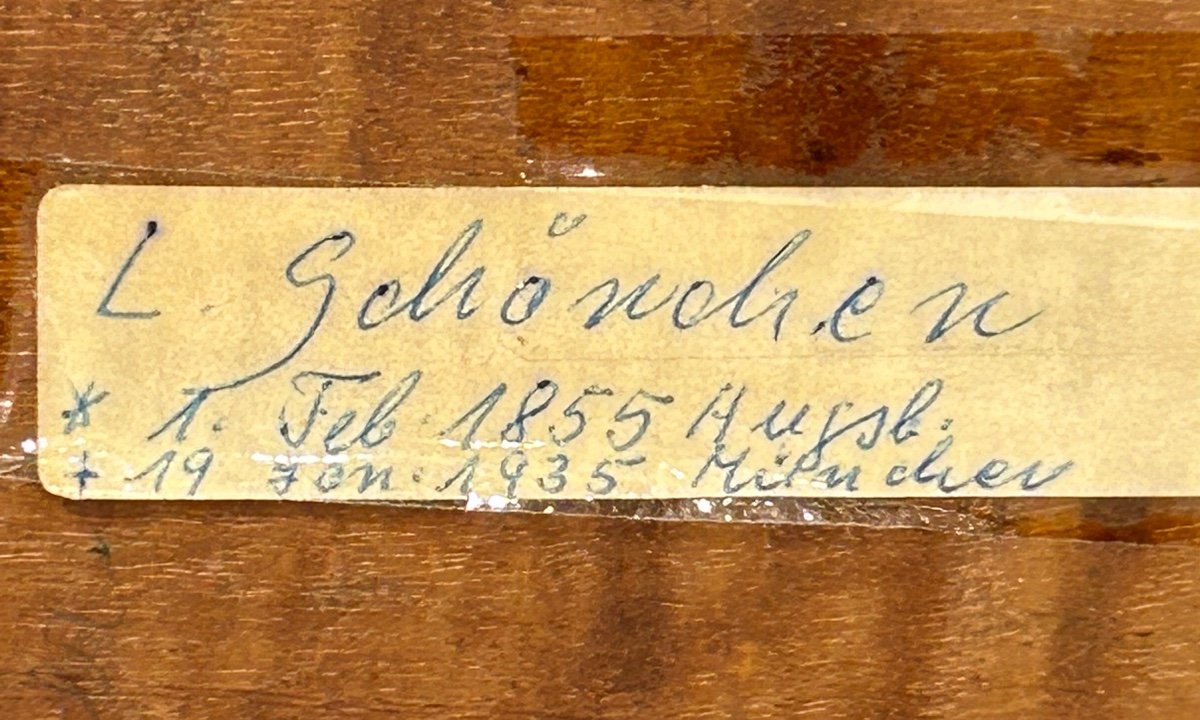 L. Schönchen
* 1. Feb. 1855 Augsb.
+ 19 Jan. 1935 München